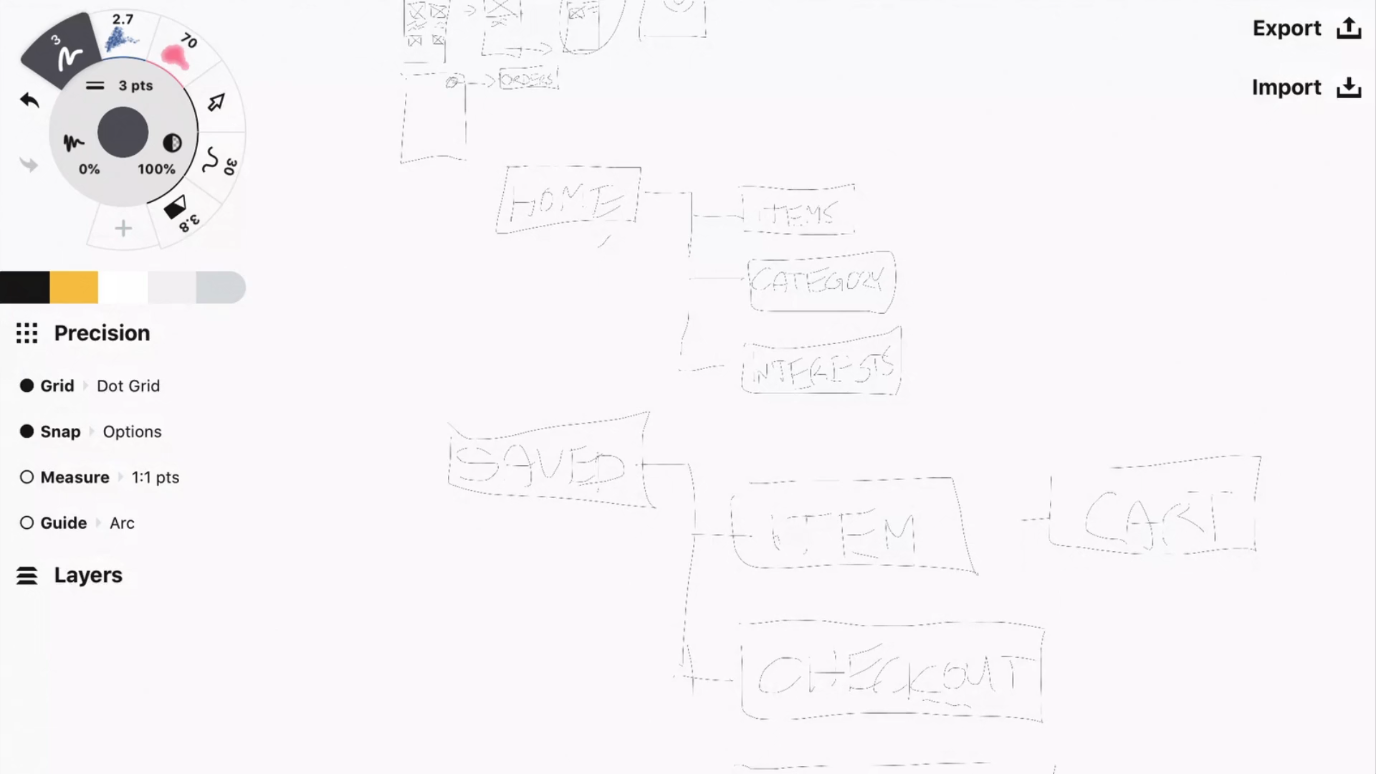 2.7
3
70
3 pts
0%
100%
30
3.8
+
Export
Import
Precision
Grid Dot Grid
Snap Options
Measure 1:1 pts
Guide Arc
Layers
ORDERS
HOME
ITEMS
CATEGORY
INTERESTS
SAVED
ITEM
CART
CHECKOUT